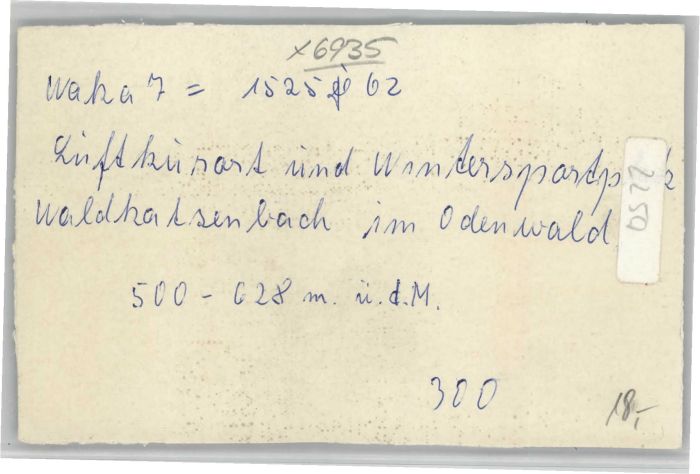 x6935
Waka 7 = 1525 62
Luftkurort und Wintersportp
Waldkatzenbach im Odenwald
2250
500 - 628 m. ü.d.M.
300
18,-